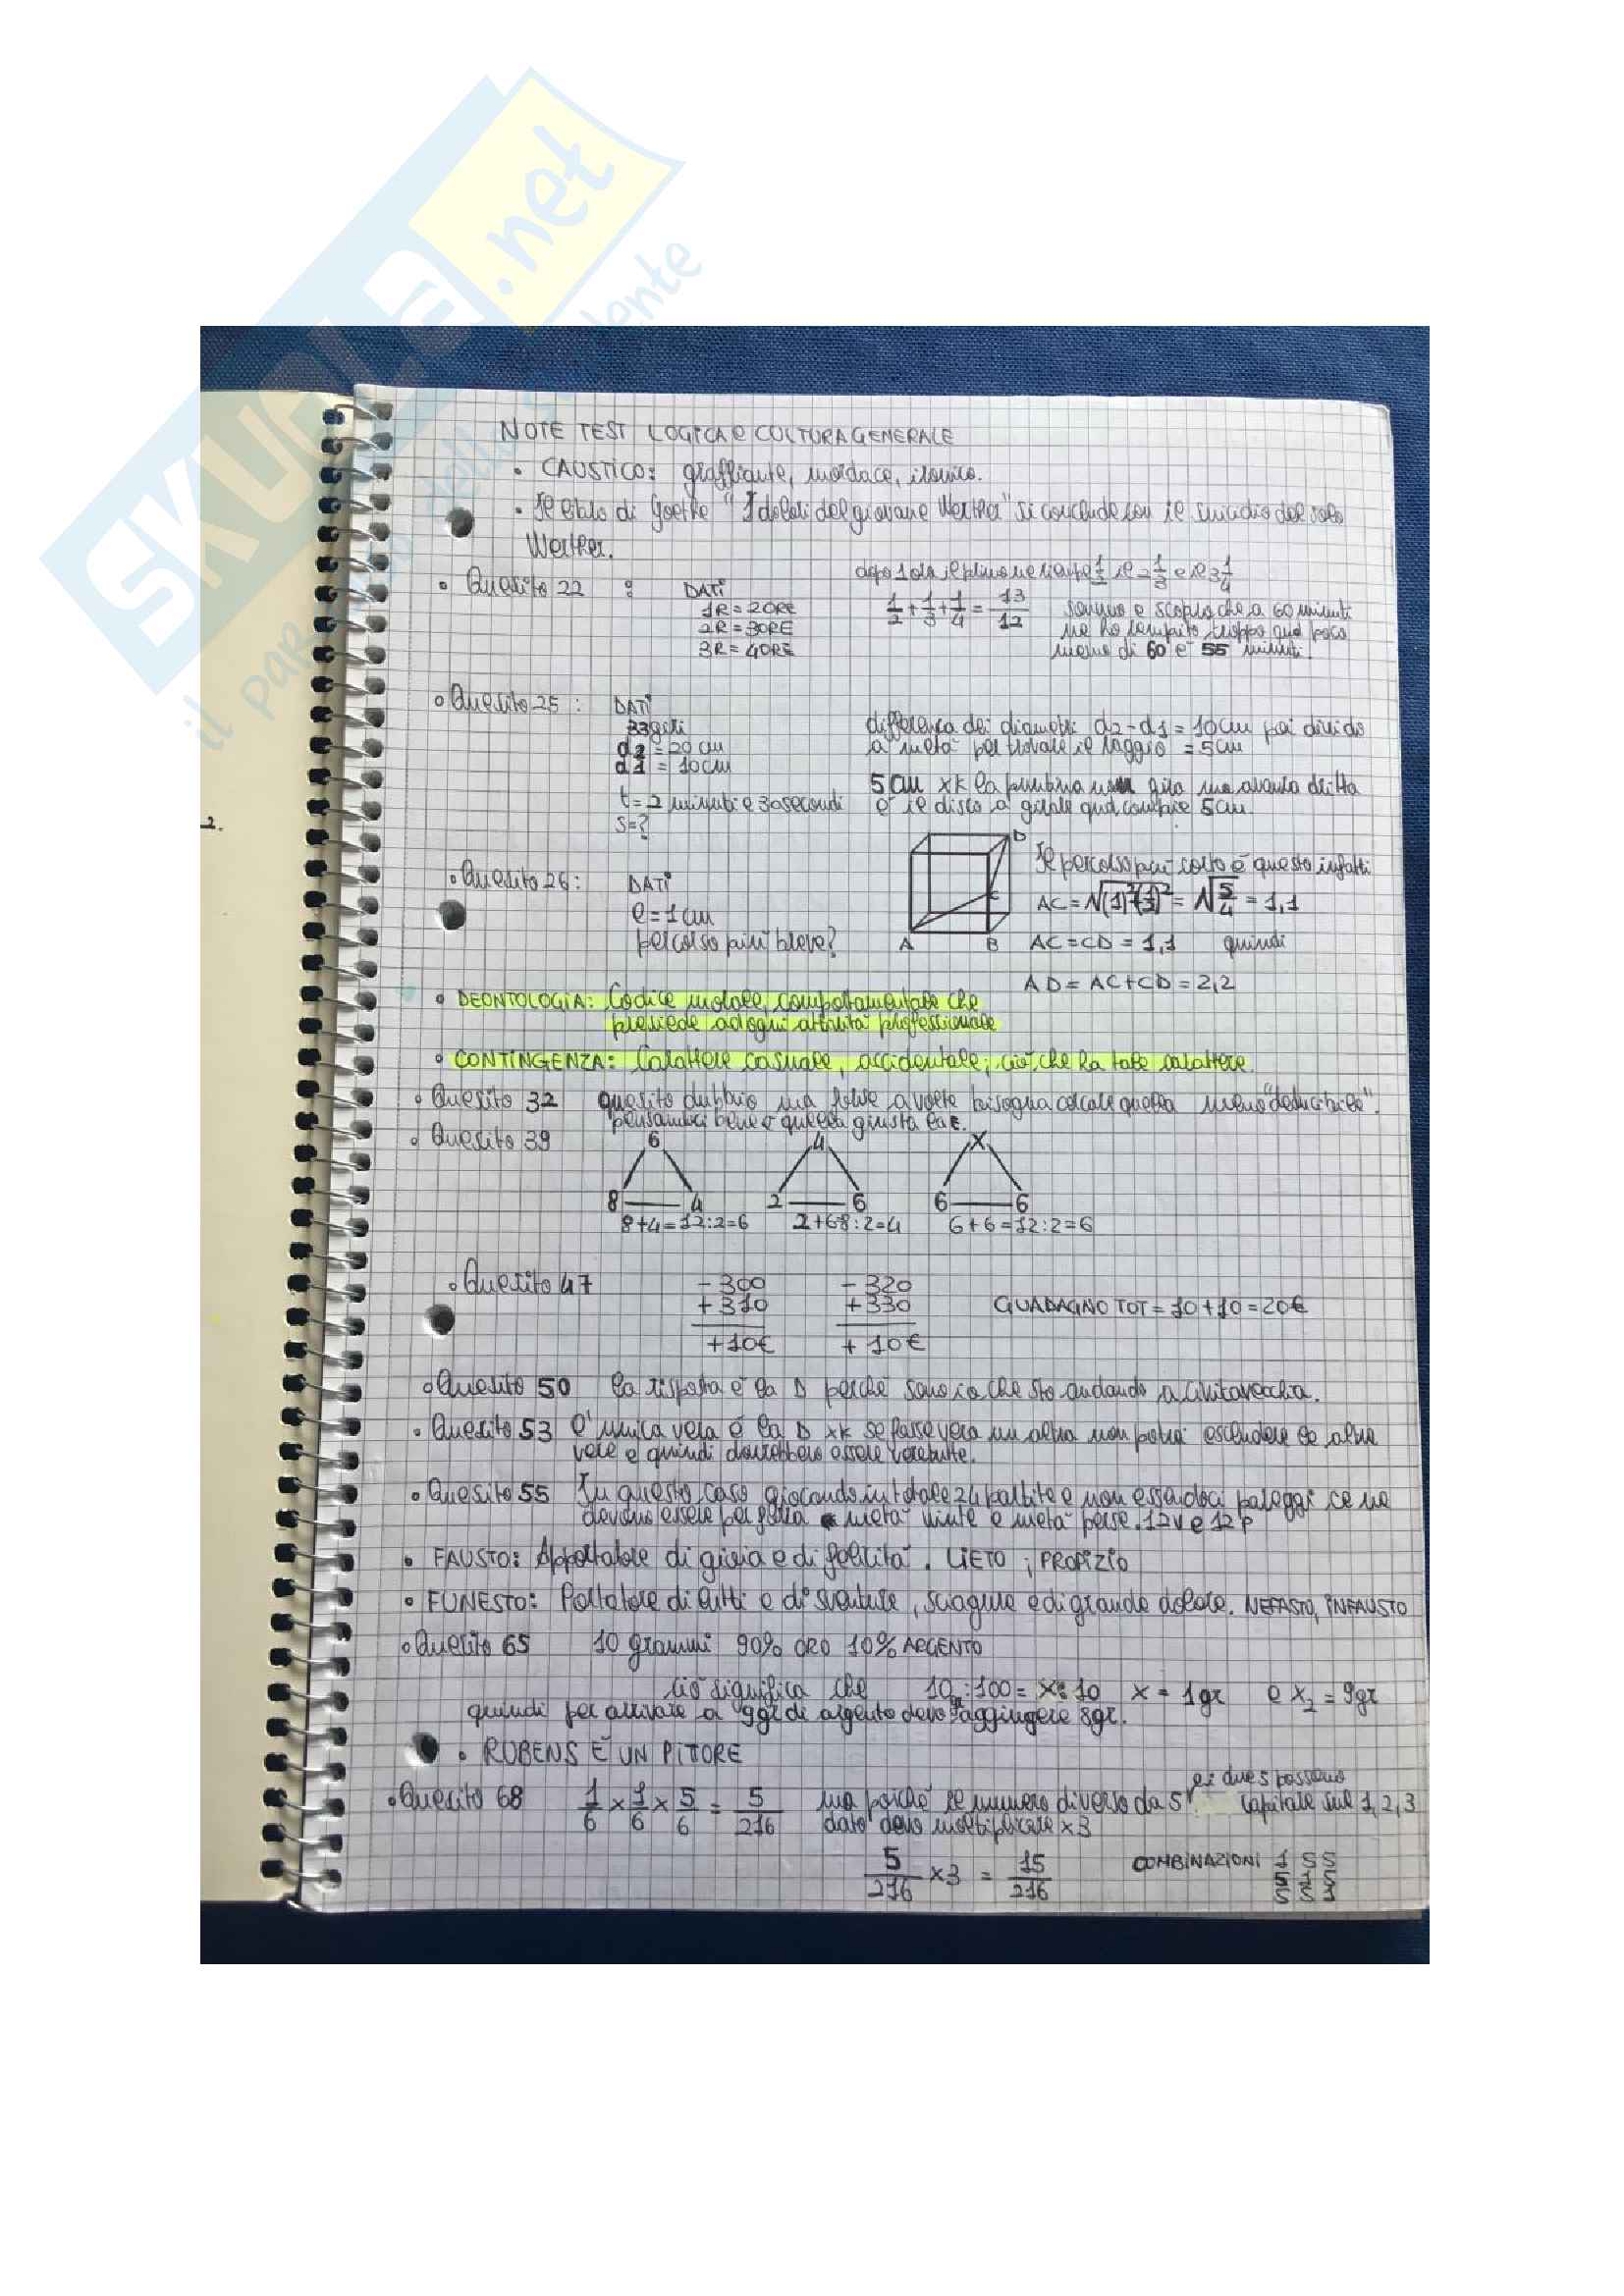 SKUOLA.net
il paradiso dello studente
NOTE TEST LOGICA e CULTURA GENERALE
• CAUSTICO: graffiante, mordace, ironico.
• Il libro di Goethe "I dolori del giovane Werther" si conclude con il suicidio del solo
Werther.
• Quesito 22 : DATI
1R = 2ORE
2R = 3ORE
3R = 4ORE
dopo 1 ora il primo ne riempe 1/2 il 2 1/3 e il 3 1/4
1/2 + 1/3 + 1/4 = 13/12
sommo e scopro che a 60 minuti
ne ho riempito troppo quindi poco
meno di 60 è 55 minuti.
• Quesito 25 : DATI
33giri
d2 = 20 cm
d1 = 10cm
t = 2 minuti e 30secondi
S=?
differenza dei diametri d2-d1 = 10cm poi divido
a metà per trovare il raggio = 5cm
5cm xk la puntina non gira ma avanza diritta
è il disco a girare quindi compie 5cm.
2.
• Quesito 26 : DATI
l = 1cm
percorso più breve?
D
C
A B
Il percorso più corto è questo infatti
AC = √ = √5/4 = 1,1
AC = CD = 1,1 quindi
AD = AC + CD = 2,2
• DEONTOLOGIA: Codice morale, comportamentale che
presiede ad ogni attività professionale
• CONTINGENZA: Carattere casuale, accidentale; ciò che ha tale carattere.
• Quesito 32 quesito dubbio ma forse a volte bisogna cercare quella meno "deducibile".
pensandoci bene è quella giusta la E.
• Quesito 39
6 4 X
8 4 2 6 6 6
8+4=12:2=6 2+68:2=4 6+6=12:2=6
• Quesito 47
- 300 - 320
+ 310 + 330
+10€ + 10€
GUADAGNO TOT = 10+10=20€
• Quesito 50 la risposta è la D perché sono io che sto andando a Civitavecchia.
• Quesito 53 l'unica vera è la D xk se fosse vera un altra non potrei escludere le altre
vere e quindi dovrebbero essere vere tutte.
• Quesito 55 In questo caso giocando in totale 24 partite e non essendoci pareggi ce ne
devono essere per forza metà vinte e metà perse. 12v e 12p
• FAUSTO: Apportatore di gioia e di felicità. LIETO, PROPIZIO
• FUNESTO: Portatore di lutti e di sventure, sciagure e di grande dolore. NEFASTO, INFAUSTO
• Quesito 65 10 grammi 90% ORO 10% ARGENTO
ciò significa che 10 :100 = x:10 x = 1gr e x2 = 9gr
quindi per arrivare a 9gr di argento devo aggiungere 8gr.
• RUBENS È UN PITORE
• Quesito 68 1/6 × 1/6 × 5/6 = 5/216 ma poiché il numero diverso da 5 e i due 5 possono capitare sul 1, 2, 3
dato devo moltiplicare ×3
5/216 ×3 = 15/216
COMBINAZIONI 1 5 5
5 1 5
5 5 1